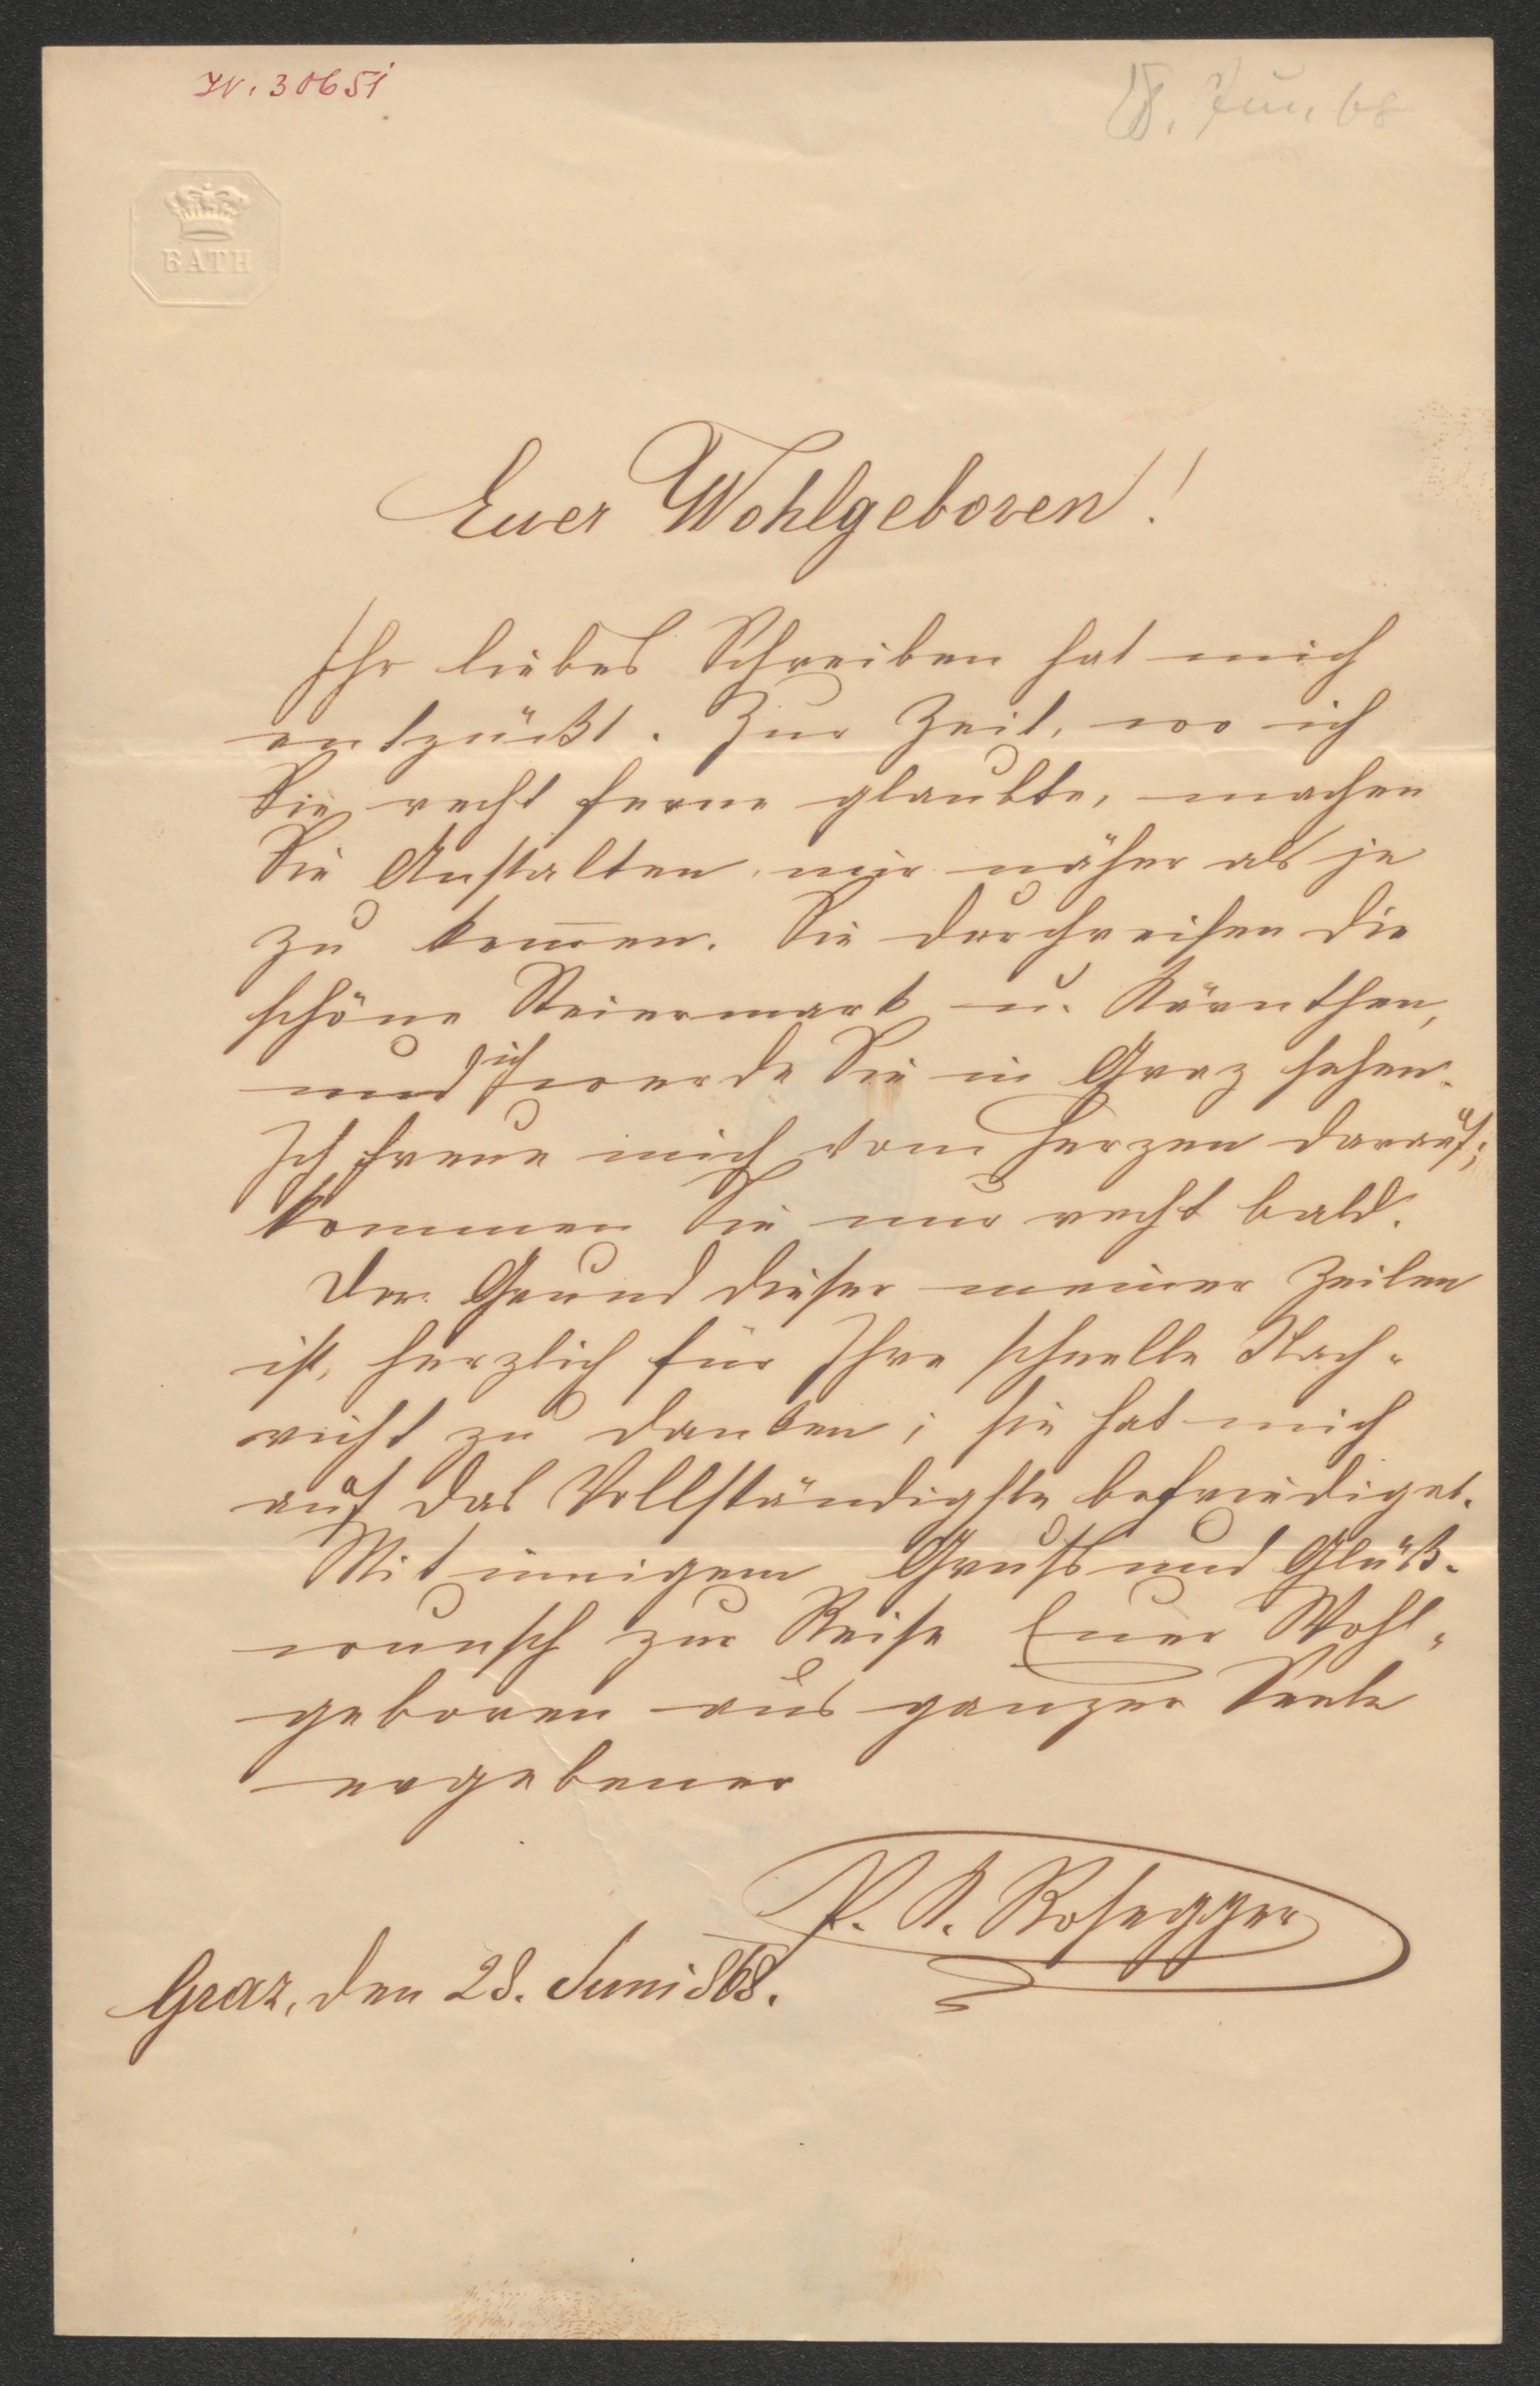 IN. 30651
28. Jun. 68
BATH
Euer Wohlgeboren!
Ihr liebes Schreiben hat mich
entzückt. Zur Zeit, wo ich
Sie recht ferne glaubte, machen
Sie Anstalten, mir näher als je
zu kom̅en. Sie durchreisen die
schöne Steiermark u. Kärnthen,
und ich werde Sie in Graz sehen.
Ich freue mich vom Herzen darauf;
kommen Sie nur recht bald.
Der Grund dieser meiner Zeilen
ist, herzlich für Ihre schnelle Nach-
richt zu danken; sie hat mich
auf das Vollständigste befriediget.
Mit innigem Gruß und Glück-
wunsch zur Reise Euer Wohl-
geboren aus ganzer Seele
ergebener
P. K. Rosegger
Graz, den 28. Juni 868.